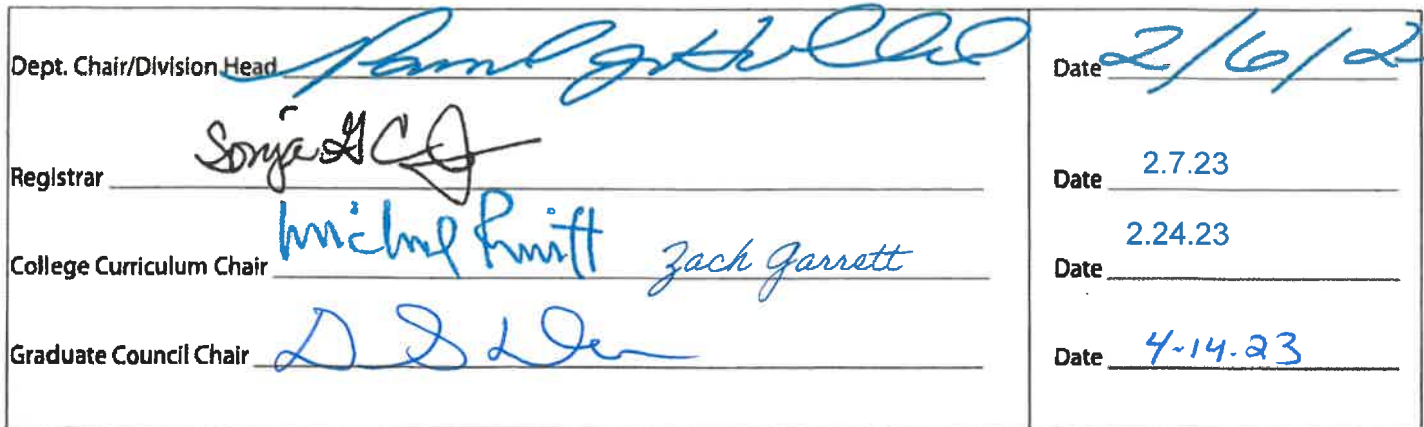 Dept. Chair/Division Head Date 2/6/2
Registrar Sonja G C Date 2.7.23
College Curriculum Chair Michael Pruitt Zach Garrett Date 2.24.23
Graduate Council Chair Date 4-14-23